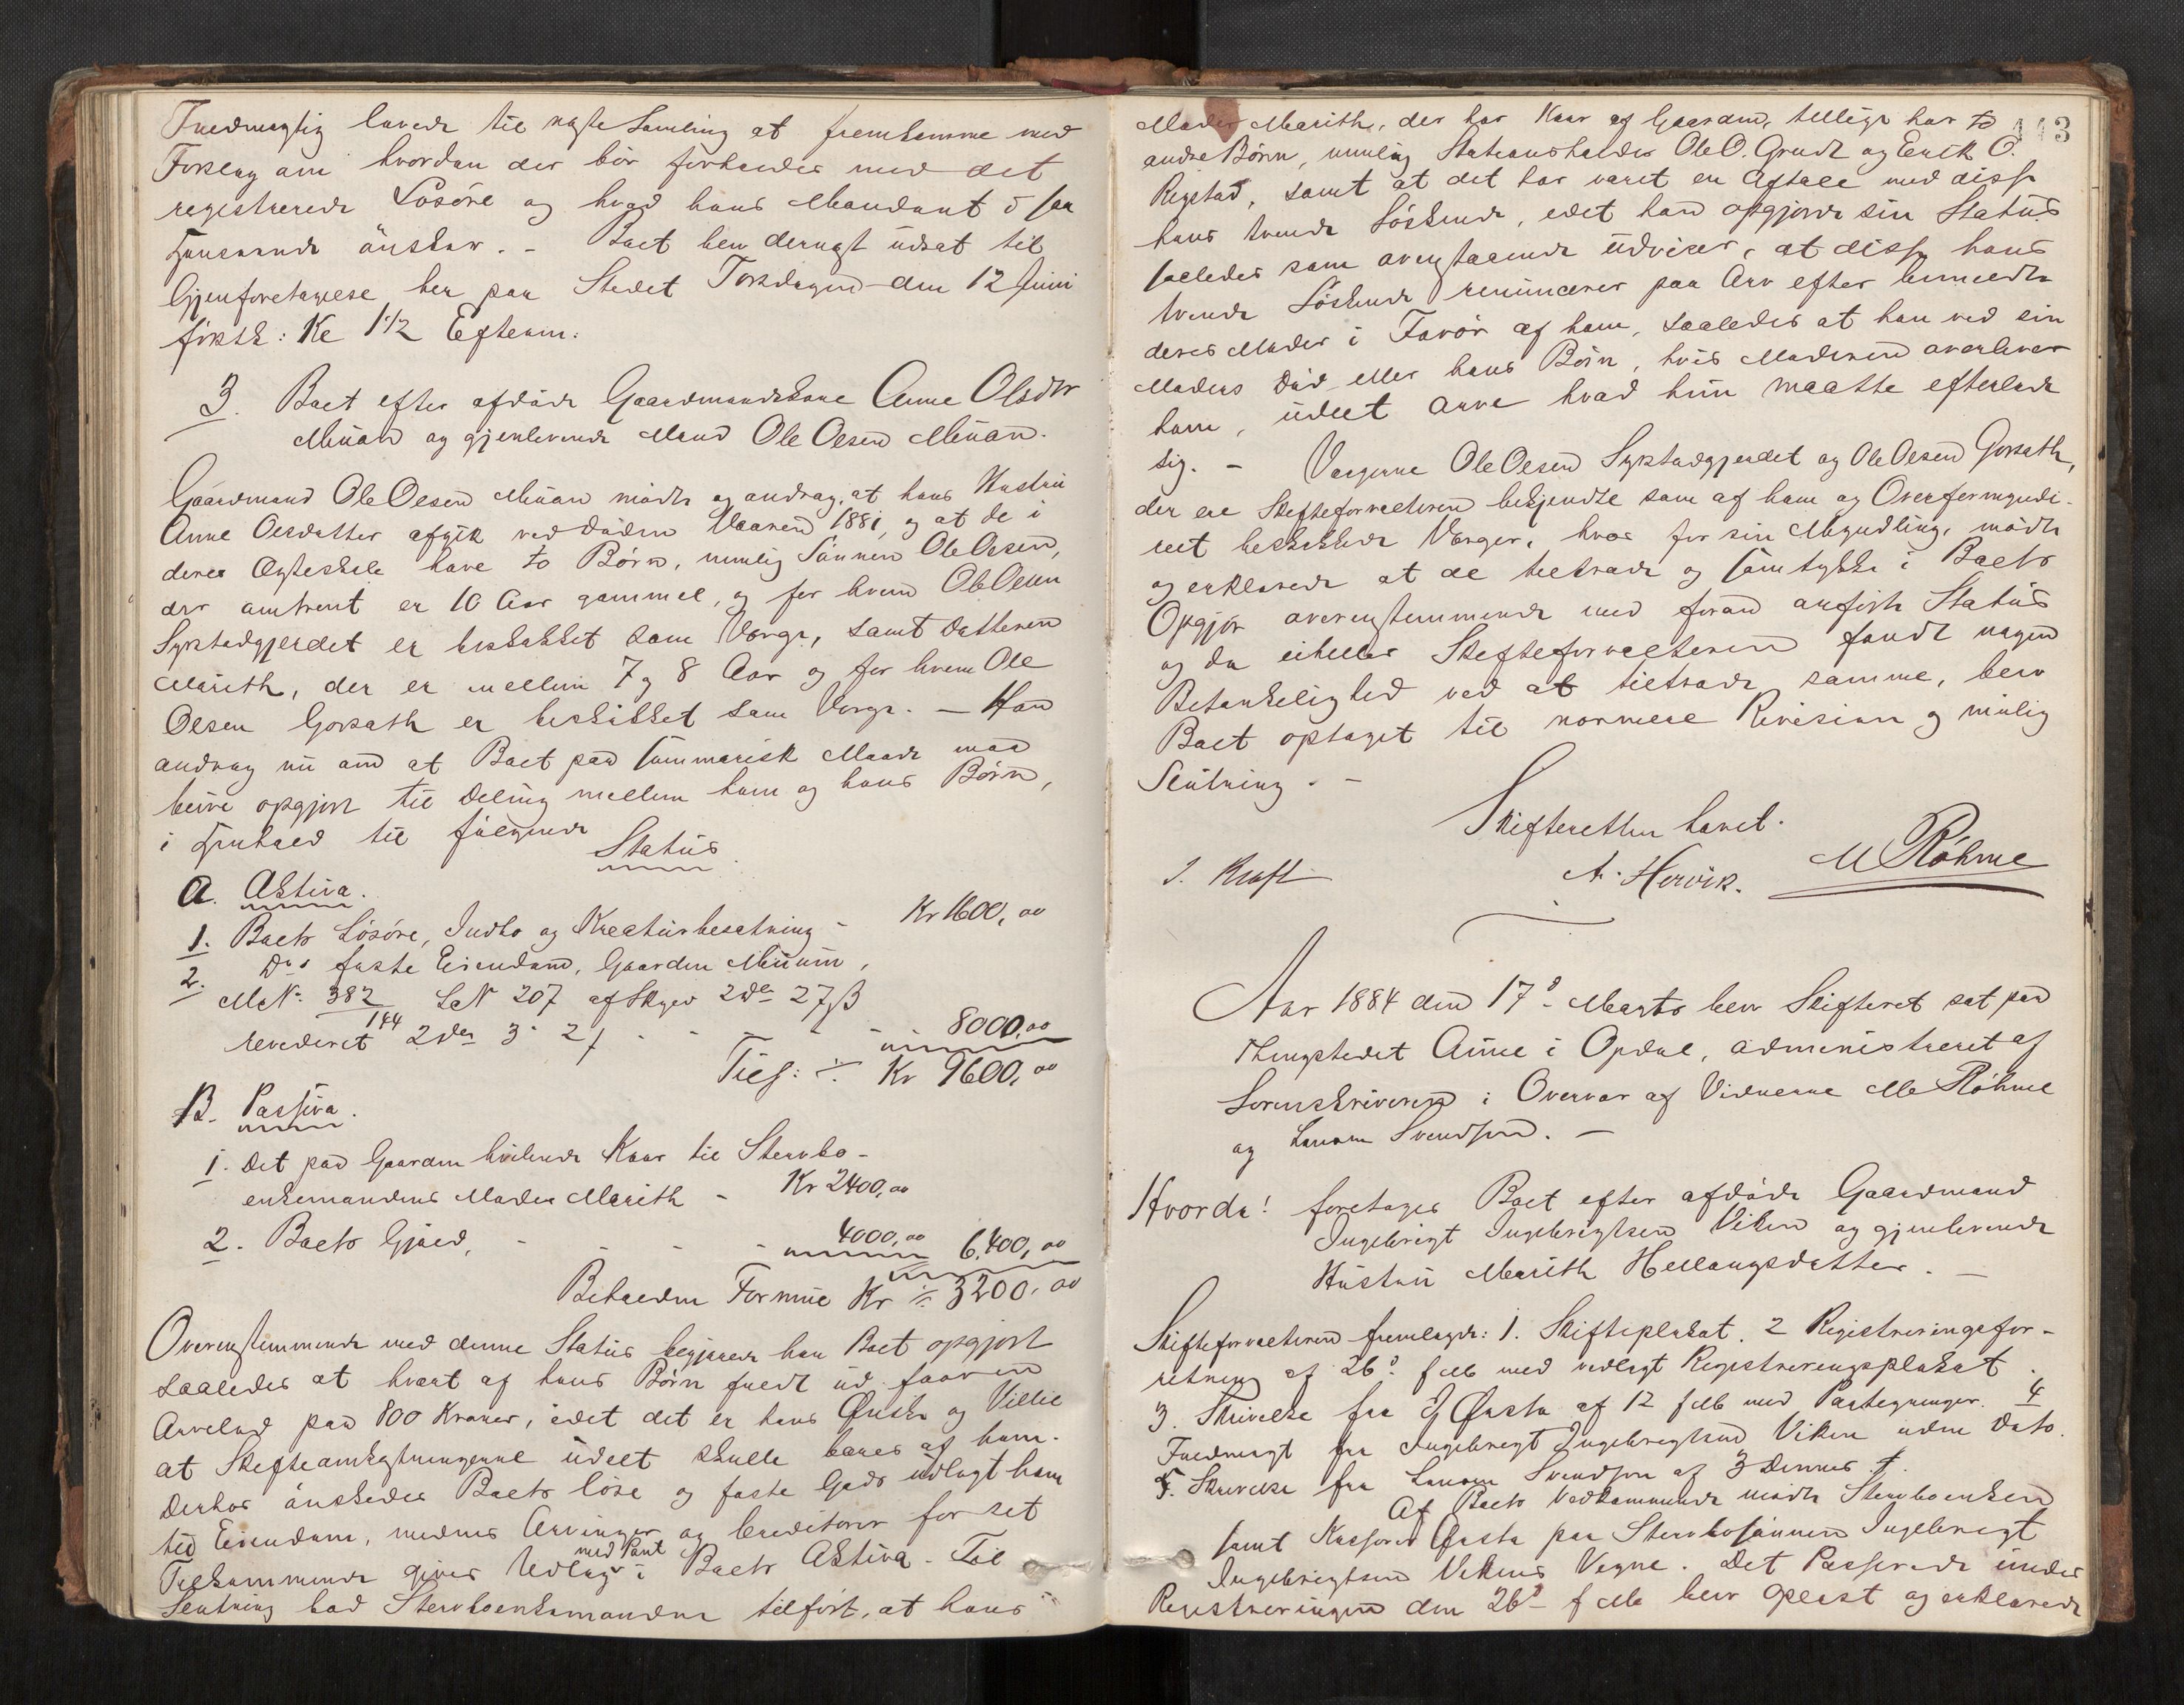 Fuldmægtig lovede til næste Samling at fremkomme med
Forslag om hvordan der bör forholdes med det
registrerede Lösöre og hvad hans Mandant i saa
Henseende önsker. - Boet blev dernæst udsat til
Gjenforetagelse her paa Stedet Torsdagen den 12 Juni
förstk: Kl 1 1/2 Efterm:
3. Boet efter afdöde Gaardmandskone Anne Olsdtr
Miuan og gjenlevende Mand Ole Olsen Miuan.
Gaardmand Ole Olsen Miuan mödte og androg, at hans Hustru
Anne Olsdatter afgik ved Döden Vaaren 1881, og at de i
deres Ægteskab have to Börn, nemlig Sönnen Ole Olsen,
der omtrent er 10 Aar gammel, og for hvem Ole Olsen
Systadgjerdet er beskikket som Værge, samt Datteren
Marith, der er mellem 7 og 8 Aar og for hvem Ole
Olsen Gorsæth er beskikket som Værge. - Han
androg nu om at Boet paa summarisk Maade maa
blive opgjort til Deling mellem ham og hans Börn,
i Henhold til fölgende
Status
A. Aktiva.
1. Boets Lösöre, Indbo og Kreaturbesætning - Kr 1600,00
2. Dos faste Eiendom, Gaarden Miuan,
MNo 382 LNo 207 af Skyld 2 dlr 27 ß
144
revideret 2 dlr 3 - 21 - - - - 8000,00
Tils: ./. Kr 9600,00
B. Passiva.
1. Det paa Gaarden hvilende Kaar til Stervbo-
enkemandens Moder Marith - Kr 2400,00
2. Boets Gjæld, - - - - 4000,00 6.400,00
Beholden Formue Kr ./. 3200,00
Overensstemmende med denne Status begjærede han Boet opgjort
saaledes at hvert af hans Börn fuldt ud faar en
Arvelod paa 800 Kroner, idet det er hans Önske og Villie
at Skifteomkostningerne udelt skulle bæres af ham.
Derhos önskedes Boets löse og faste Gods udlagt ham
til Eiendom, medens Arvinger og Creditorer for sit
Tilkommende gives Udlæg med Pant i Boets Aktiva. - Til
Slutning bad Stervboenkemanden tilfört, at hans
113
Moder Marith, der har Kaar af Gaarden, tillige har to
andre Börn, nemlig Stationsholder Ole O. Grudt og Erik O.
Rigstad, samt at det har været en Aftale med disse
hans tvende Söskende, idet han opgjorde sin Status
saaledes som ovenstaaende udviser, at disse hans
tvende Söskende renuncerer paa Arv efter bemeldte
deres Moder i Favör af ham, saaledes at han ved sin
Moders Död eller hans Börn, hvis Moderen overlever
ham, udelt arve hvad hun maatte efterlade
sig. - Værgerne Ole Olsen Systadgjerdet og Ole Olsen Gorsæth,
der ere Skifteforvalteren bekjendte som af ham og Overformynderi-
reet beskikkede Værger, hver for sin Myndling, mödte
og erklærede at de tiltræde og samtykke i Boets
Opgjör overensstemmende med foran anförte Status
og da eiheller Skifteforvalteren fandt nogen
Betænkelighed ved at tiltræde samme, blev
Boet optaget til nærmere Revision og mulig
Slutning. -
Skifteretten hævet.
J. Kraft A. Hervik. M Röhme
Aar 1884 den 17de Marts blev Skifteret sat paa
Thingstedet Aune i Opdal, administreret af
Sorenskriveren i Overvær af Vidnerne M Röhme
og Svendsen. -
Hvorda! foretages Boet efter afdöde Gaardmand
Ingebrigt Ingebrigtsen Viken og gjenlevende
Hustru Marith Hallangsdatter. -
Skifteforvalteren fremlagde: 1. Skifteplakat. 2 Registreringsfor-
retning af 26de f. M. med vedlagt Registreringsplakat.
3. Skrivelse fra Ørsta af 12 f. M. med Paategninger. 4
Fuldmagt fra Ingebrigt Ingebrigtsen Viken uden Dato.
5. Skrivelse fra Svendsen af 3 Dennes.
Af Boets Vedkommende mödte Stervboenken
samt Kasserer Ørsta paa Stervbosönnen Ingebrigt
Ingebrigtsen Vikens Vegne. Det Passerede under
Registreringen den 26de f. M. blev oplæst og erklærede